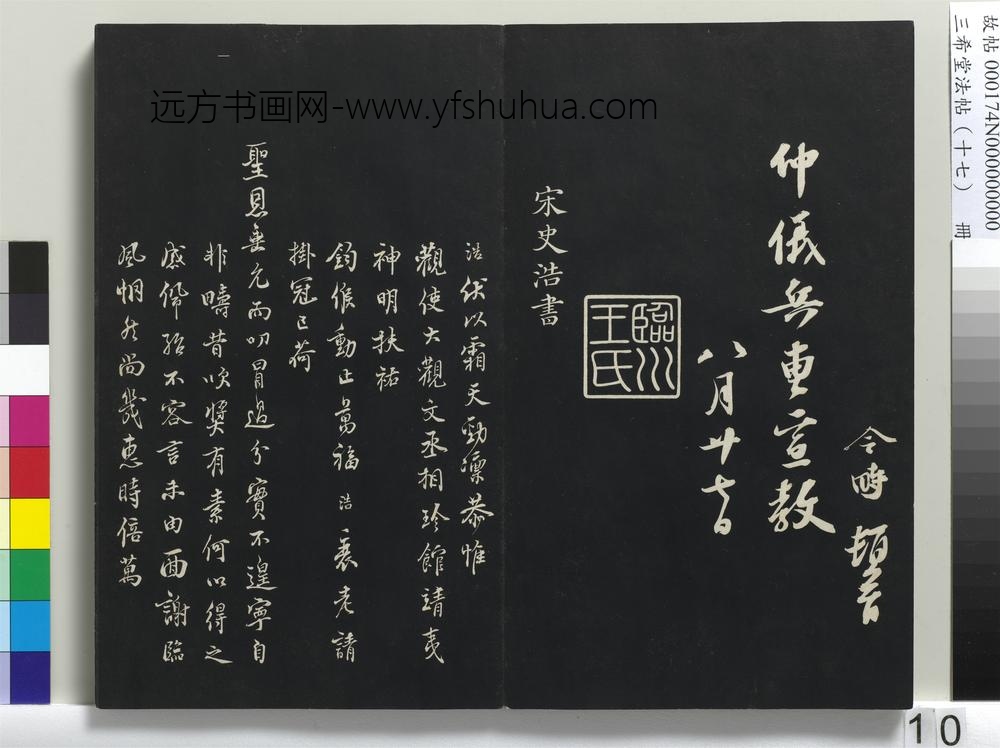 故帖000174N000000000
三希堂法帖（十七） 冊
远方书画网-www.yfshuhua.com
令時頓首
仲儀兵曹宣教
八月廿七日
臨川王氏
宋史浩書
浩伏以霜天勁凜恭惟
觀使大觀文丞相珍館靖夷
神明扶祐
鈞候動止萬福浩衰老請
掛冠已荷
聖恩垂允而叨冒過分實不遑寧自
非疇昔吹獎有素何以得之
感佩殆不容言未由面謝臨
風惘然尚幾惠時倍萬
10